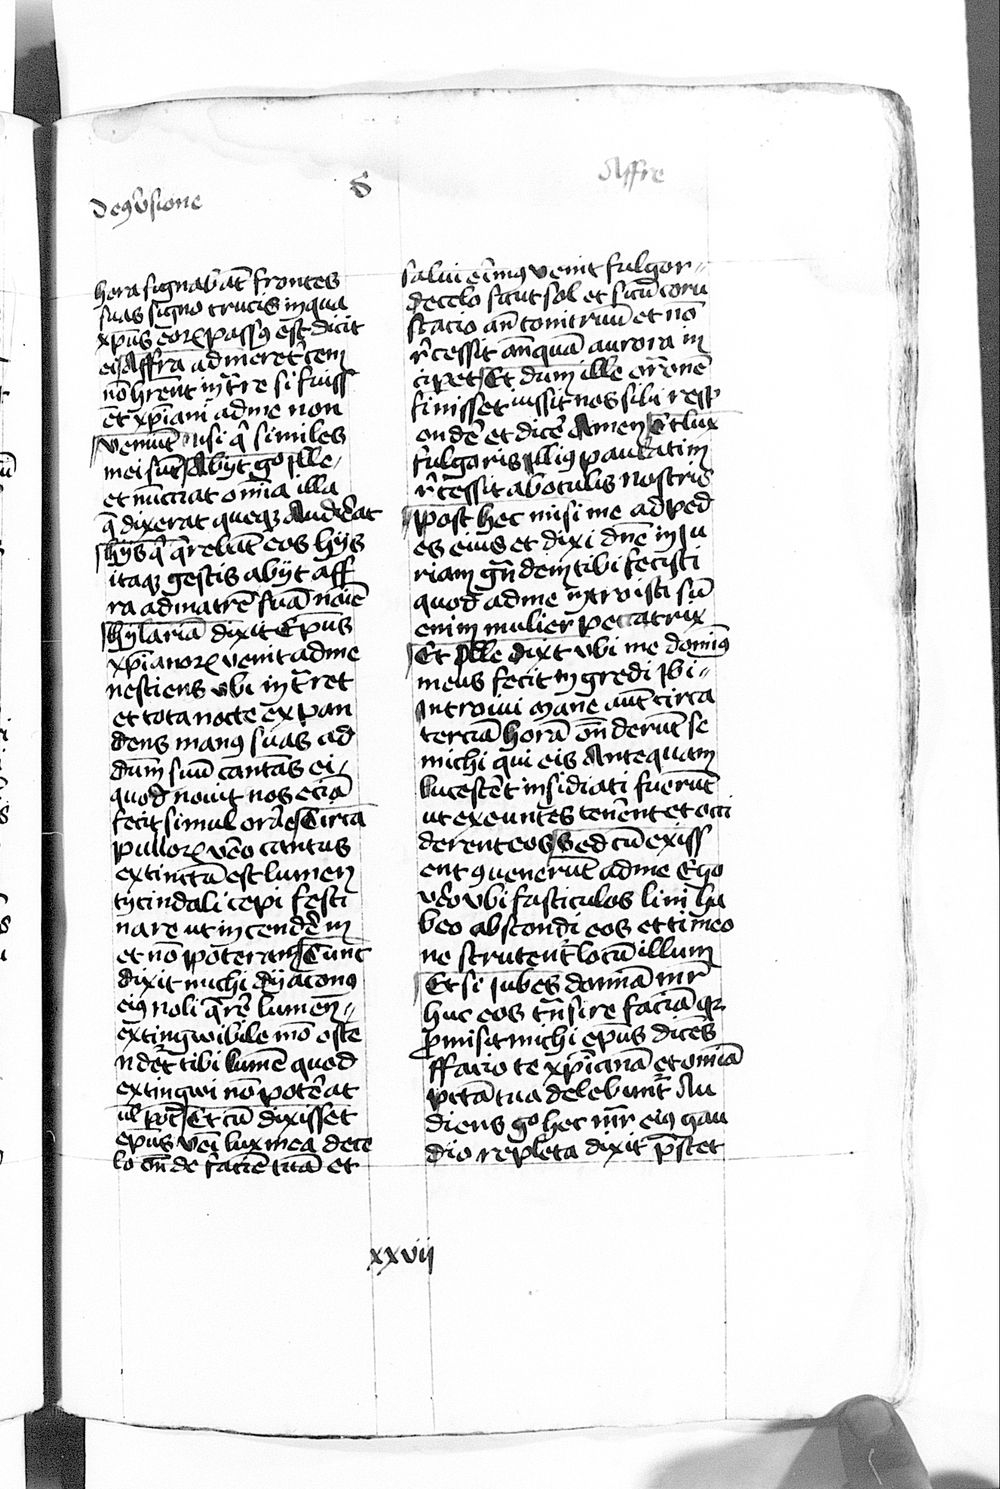 de ꝯv̄sione
S
Affre
hora signabāt frontes
suas signo crucis in qua
xp̄us eoꝝ passꝰ est dicit
ei Affra ad meret'cem
nō hrent int͞re si fuiss
ēt xp̄iani ad me non
venīūt nisi q̄ similes
mei sūt Abijt g̊ ille
et nūctiat om̄ia illa
q̄ dixerat queqꝫ audiēat
hijs q̄ q̄rebāt eos hijs
itaqꝫ gestis abijt aff
ra ad matrē suā nōīe
hylariā dixit Ep̄us
xp̄ianoꝝ venit ad me
nestiens vbi int͞ret
et tota nocte expan
dens manꝰ suas ad
dūm suū cantās ei
quod novit nos eciā
fecit simul orāēs Circa
pulloꝝ vēo cantus
extinctū est lumen
tycindali cepi festi
nare ut incendēm
et nō poteram Tunc
dixit michi dyaconꝰ
eiꝰ noli q̄rē lumen
extingwibile mō oste
ndet tibi lumē quod
extingwi nō potēat
ul pōt Et cū dixisset
ep̄us vēi lux mea de ce
lo ōn̄de faciē tuā et
salui eīmꝰ venit fulgor
de celo sicut sol et sicū coru
scatio an̄ tonitruū et nō
r̄cessit an̄quā aurora in
cip̄et Et dum ille or̄onē
finisset iussit nos sibi resp
ondē et dicē Amen Et lux
fulgoris illiꝰ paulatim
r̄cessit ab oculis nostris
post hec misi me ad ped
es eius et dixi dn̄e inju
riam grādem tibi fecisti
quod ad me int͞roisti sū
enim mulier peccatrix
Et ille dixt vbi me dominꝰ
meus fecit ingredi ibi
introivi mane aūt circa
terciā horā on̄derūt se
michi qui eis antequam
lucescēt insidiati fuerūt
ut exeuntes tenērent et occi
derent eos Sed cū exiss
ent ꝯvenerūt ad me Ego
vēo vbi fasticulos lini ha
beo abscondi eos et timeo
ne scrutent̄ locū illum
Et si jubes domīa mr̄
huc eos trn̄sire faciā qꝫ
ꝓmisit michi ep̄us dicēs
ffatio te xp̄ianā et om̄ia
pctā tua delebunt̄ Au
diens g̊ hec mr̄ eiꝰ gau
dio repleta dixit p̄stet
xxvij